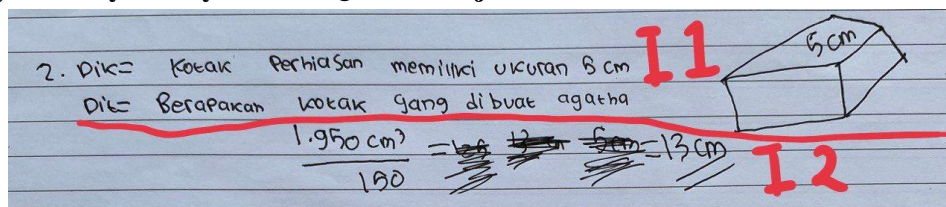 I1
5 cm
2. Dik= Kotak Perhiasan memiliki ukuran 5 cm
Dit= Berapakah kotak yang dibuat agatha
1.950 cm³ = = 13 cm
150
I2